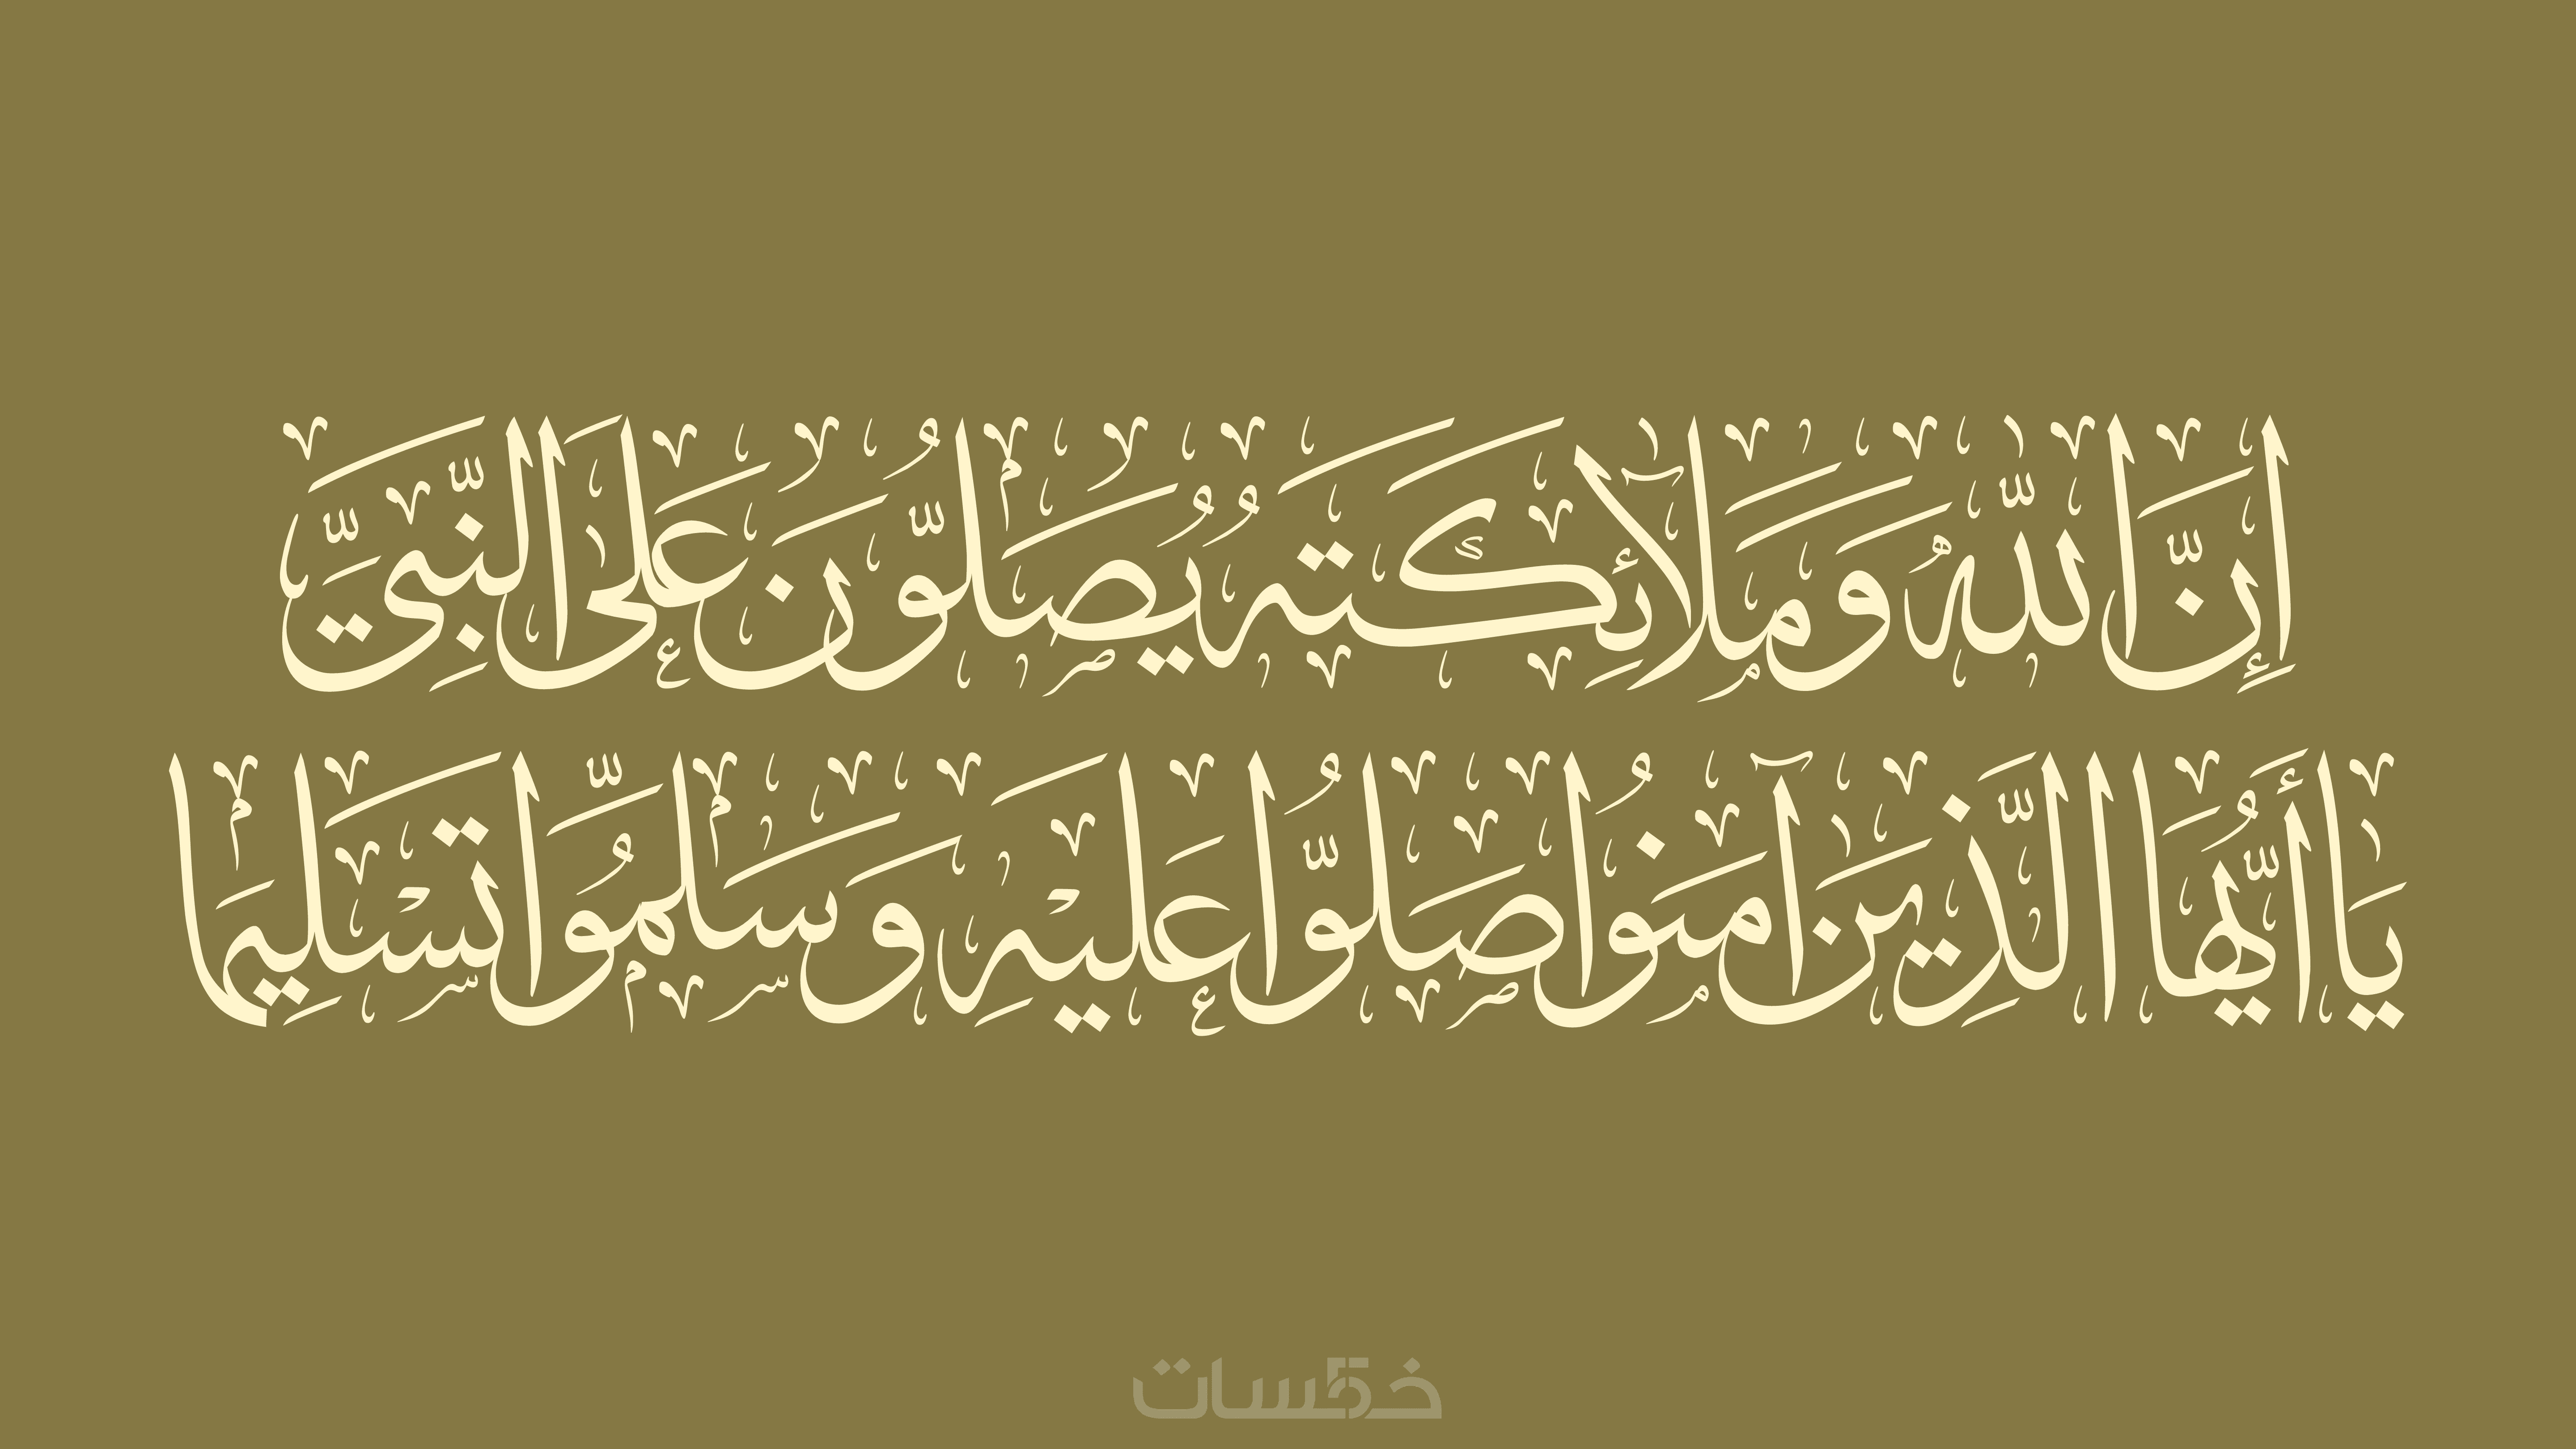 إِنَّ اللّٰهَ وَمَلَآئِكَتَهُ يُصَلُّونَ عَلَى النَّبِيِّ
يَا أَيُّهَا الَّذِينَ آمَنُوا صَلُّوا عَلَيْهِ وَسَلِّمُوا تَسْلِيمًا
خمسات